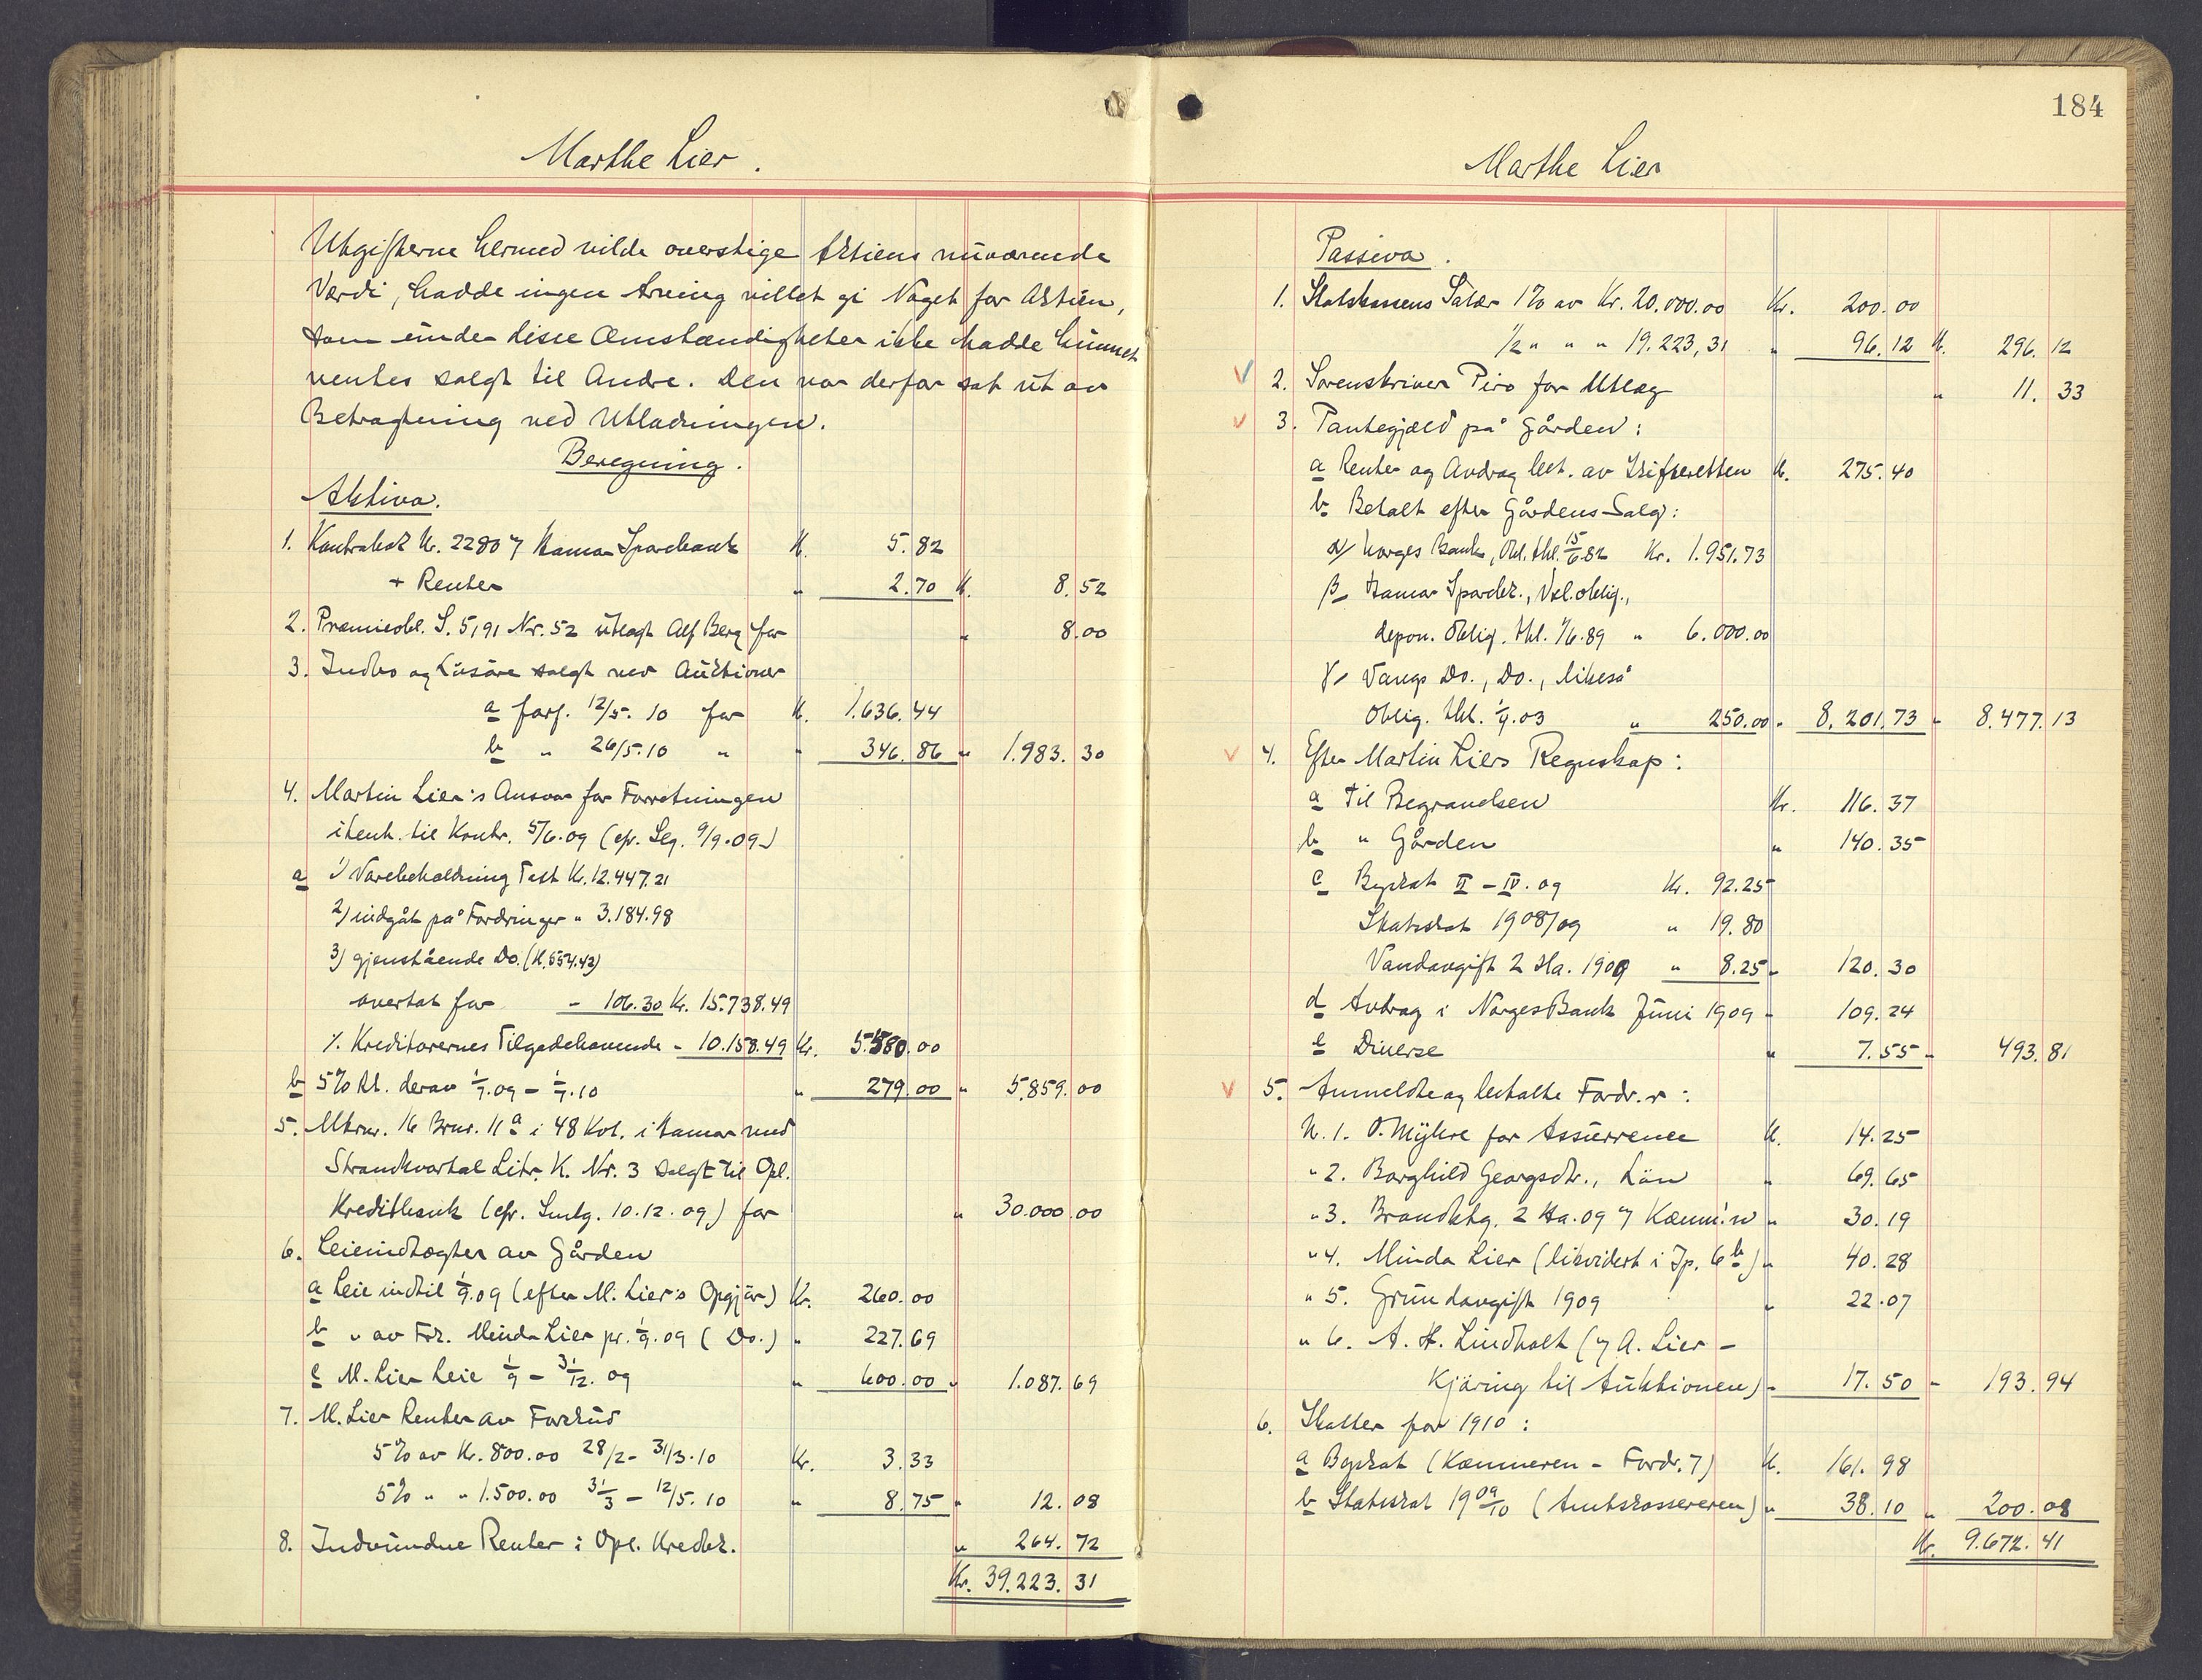 Marthe Lier.
Utgifterne hermed vilde overstige Aktiens nuværende
Værdi, hadde ingen Arving villet gi Noget for Aktien,
som under disse Omstændigheter ikke hadde kunnet
ventes solgt til Andre. Den var derfor sat ut av
Betragtning ved Utlodningen.
Beregning.
Aktiva.
1. Kontrabok Nr. 2280 i Hamar Sparebank K. 5.82
+ Renter " 2.70 K. 8.52
2. Præmieobl. S. 5191 Nr. 52 utlagt Alf Berg for " 8.00
3. Indbo og Løsøre solgt ved Auktioner
a forf. 12/5.10 for K. 1.636.44
b " 26/5.10 " " 346.86 " 1.983.30
4. Martin Lier's Ansvar for Forretningen
i henh. til Kontr. 5/6.09 (cfr. Sg. 9/9.09)
a 1) Varebeholdning Tax Kr. 12.447.21
2) indgåt på Fordringer " 3.184.98
3) gjenstående Do. (K. 554.43)
overtat for - 106.30 Kr. 15.738.49
% Kreditorernes Tilgodehavende - 10.158.49 Kr. 5.580.00
b 5% Rt. derav 1/7.09 - 1/7.10 " 279.00 " 5.859.00
5. Mtrnr. 16 Brnr. 11a i 48 Kvt. i Hamar med
Strandkvartal Litr. K. Nr. 3 solgt til Opl.
Kreditbank (cfr. Smlg. 10.12.09) for " 30.000.00
6. Leieindtægter av Gården
a Leie indtil 1/9.09 (efter M. Lier's Opgjør) Kr. 260.00
b " av Frk. Minda Lier pr. 1/9.09 (Do.) " 227.69
c M. Lier Leie 1/9 - 31/12.09 " 600.00 " 1.087.69
7. M. Lier Renter av Forskud
5% av Kr. 800.00 28/2 - 31/3.10 Kr. 3.33
5% " " 1.500.00 31/3 - 12/5.10 " 8.75 " 12.08
8. Indvundne Renter i Opl. Kredbk. " 264.72
Kr. 39.223.31
184
Marthe Lier
Passiva.
1. Statskassens Salær 1% av Kr. 20.000.00 Kr. 200.00
1/2 " " " 19.223,31 " 96.12 K. 296.12
2. Sorenskriver Piro for Utlæg " 11.33
3. Pantegjæld på Gården:
a Renter og Avdrag bet. av Skifteretten K. 275.40
b Betalt efter Gårdens Salg:
α/ Norges Bank, Obl. thl. 15/6.82 Kr. 1.951.73
β_ Hamar Sparebk., Vxl. oblig.,
depon. Oblig. thl. 1/6.89 " 6.000.00
γ/ Vangs Do., Do., likeså
Oblig. thl. 1/9.03 " 250.00 " 8.201.73 " 8.477.13
4. Efter Martin Liers Regnskap:
a Til Begravelsen Kr. 116.37
b " Gården " 140.35
c Byskat II - IV. 09 Kr. 92.25
Statsskat 1908/09 " 19.80
Vandavgift 2 Ha. 1909 " 8.25 " 120.30
d Avdrag i Norges Bank Juni 1909 " 109.24
e Diverse " 7.55 " 493.81
5. Anmeldte og betalte Fordr.r:
N. 1. O. Myhre for Assurrence K. 14.25
" 2. Borghild Georgsdtr., Løn " 69.65
" 3. Brandktg. 2 Ha. 09 Kæmn'n " 30.19
" 4. Minda Lier (likvidert i Jp. 6b) " 40.28
" 5. Grundavgift 1909 " 22.07
" 6. A. H. Lindholt (A. Lier -
Kjøring til Auktionen) " 17.50 " 193.94
6. Skatter for 1910:
a Byskat (Kæmneren - Fordr. 7) K. 161.98
b Statsskat 1909/10 (Amtskassereren) " 38.10 " 200.08
Kr. 9.672.41